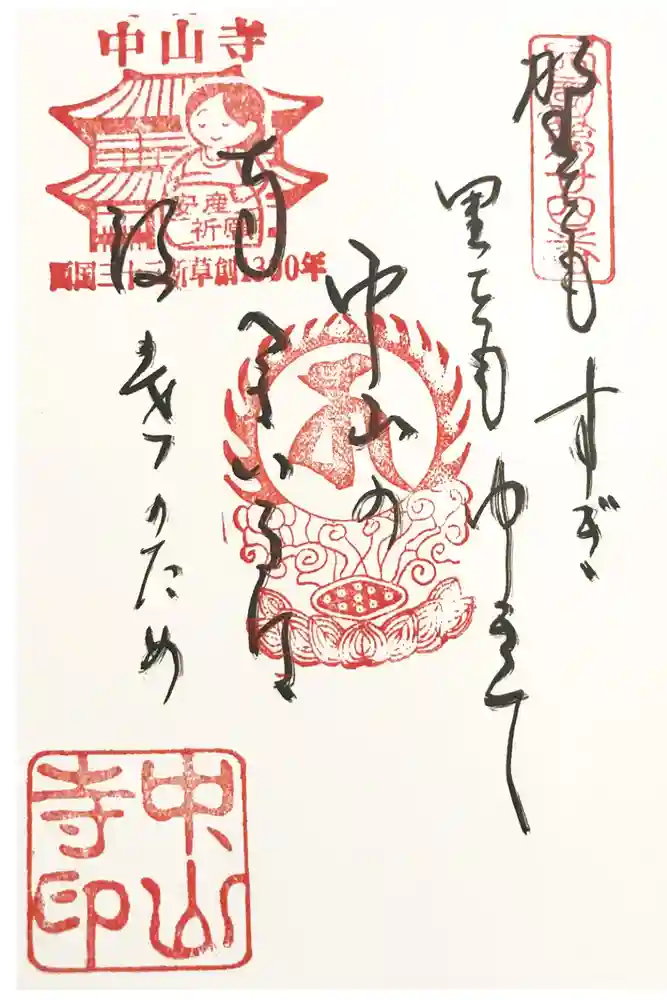 西国第廿四番
野をもすぎ
里をもゆきて
中山の
寺へまいるは
後の世のため
中山寺
安産
祈願
西国三十三所草創1300年
中山寺印